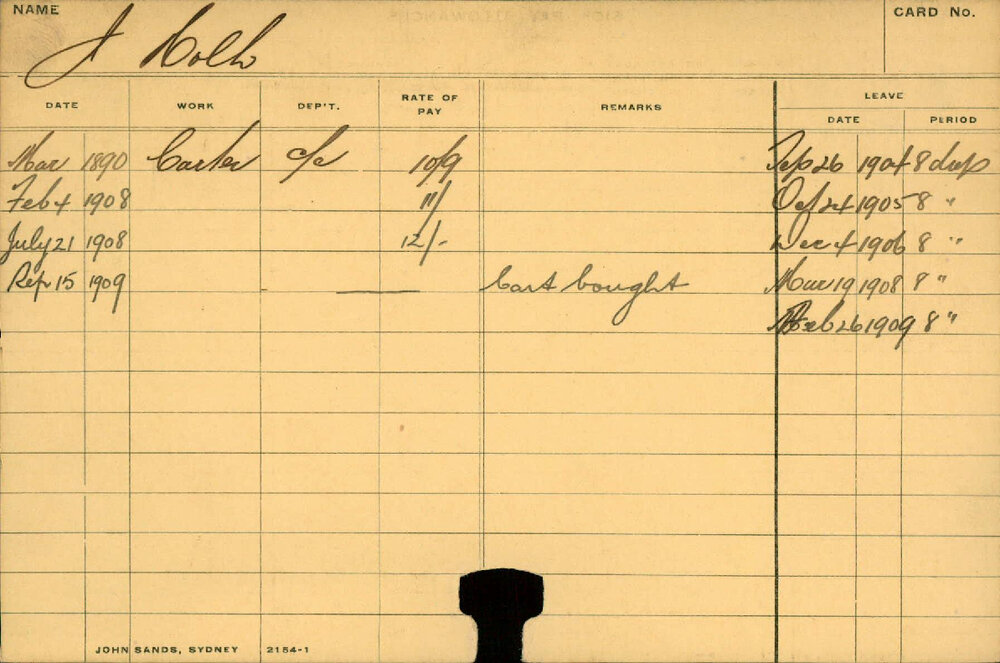 NAME
CARD No.
J
DATE WORK DEP'T. RATE OF PAY REMARKS LEAVE
DATE PERIOD
Mar 1890 Carter c/c 10/9 Sep 26 1904 8 days
Feb 4 1908 11/ Oct 24 1905 8 "
July 21 1908 12/- Dec 4 1906 8 "
Sep 15 1909 - — Cart bought Mar 19 1908 8 "
Feb 26 1909 8 "
JOHN SANDS, SYDNEY 2154-1